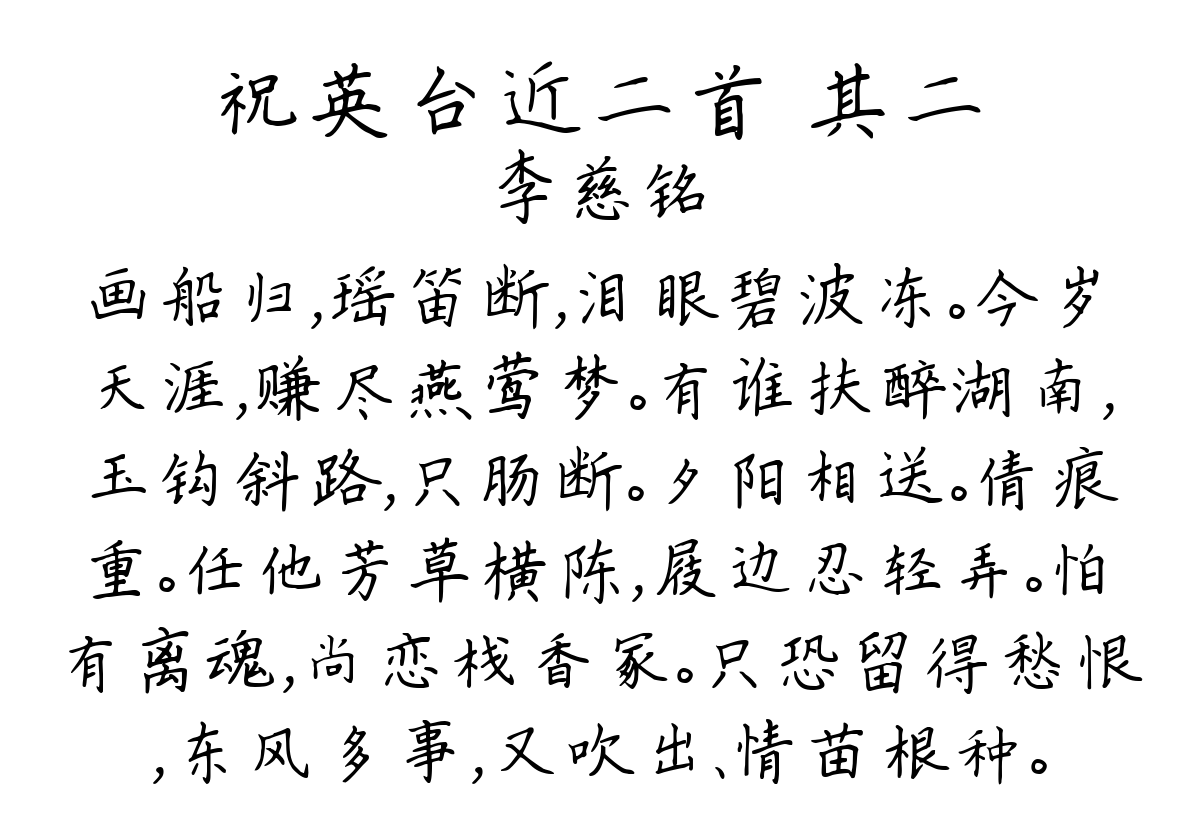 祝英台近二首 其二
李慈铭
画船归,瑶笛断,泪眼碧波冻。今岁
天涯,赚尽燕莺梦。有谁扶醉湖南,
玉钩斜路,只肠断。夕阳相送。倩痕
重。任他芳草横陈,屐边忍轻弄。怕
有离魂,尚恋栈香冢。只恐留得愁恨
,东风多事,又吹出、情苗根种。